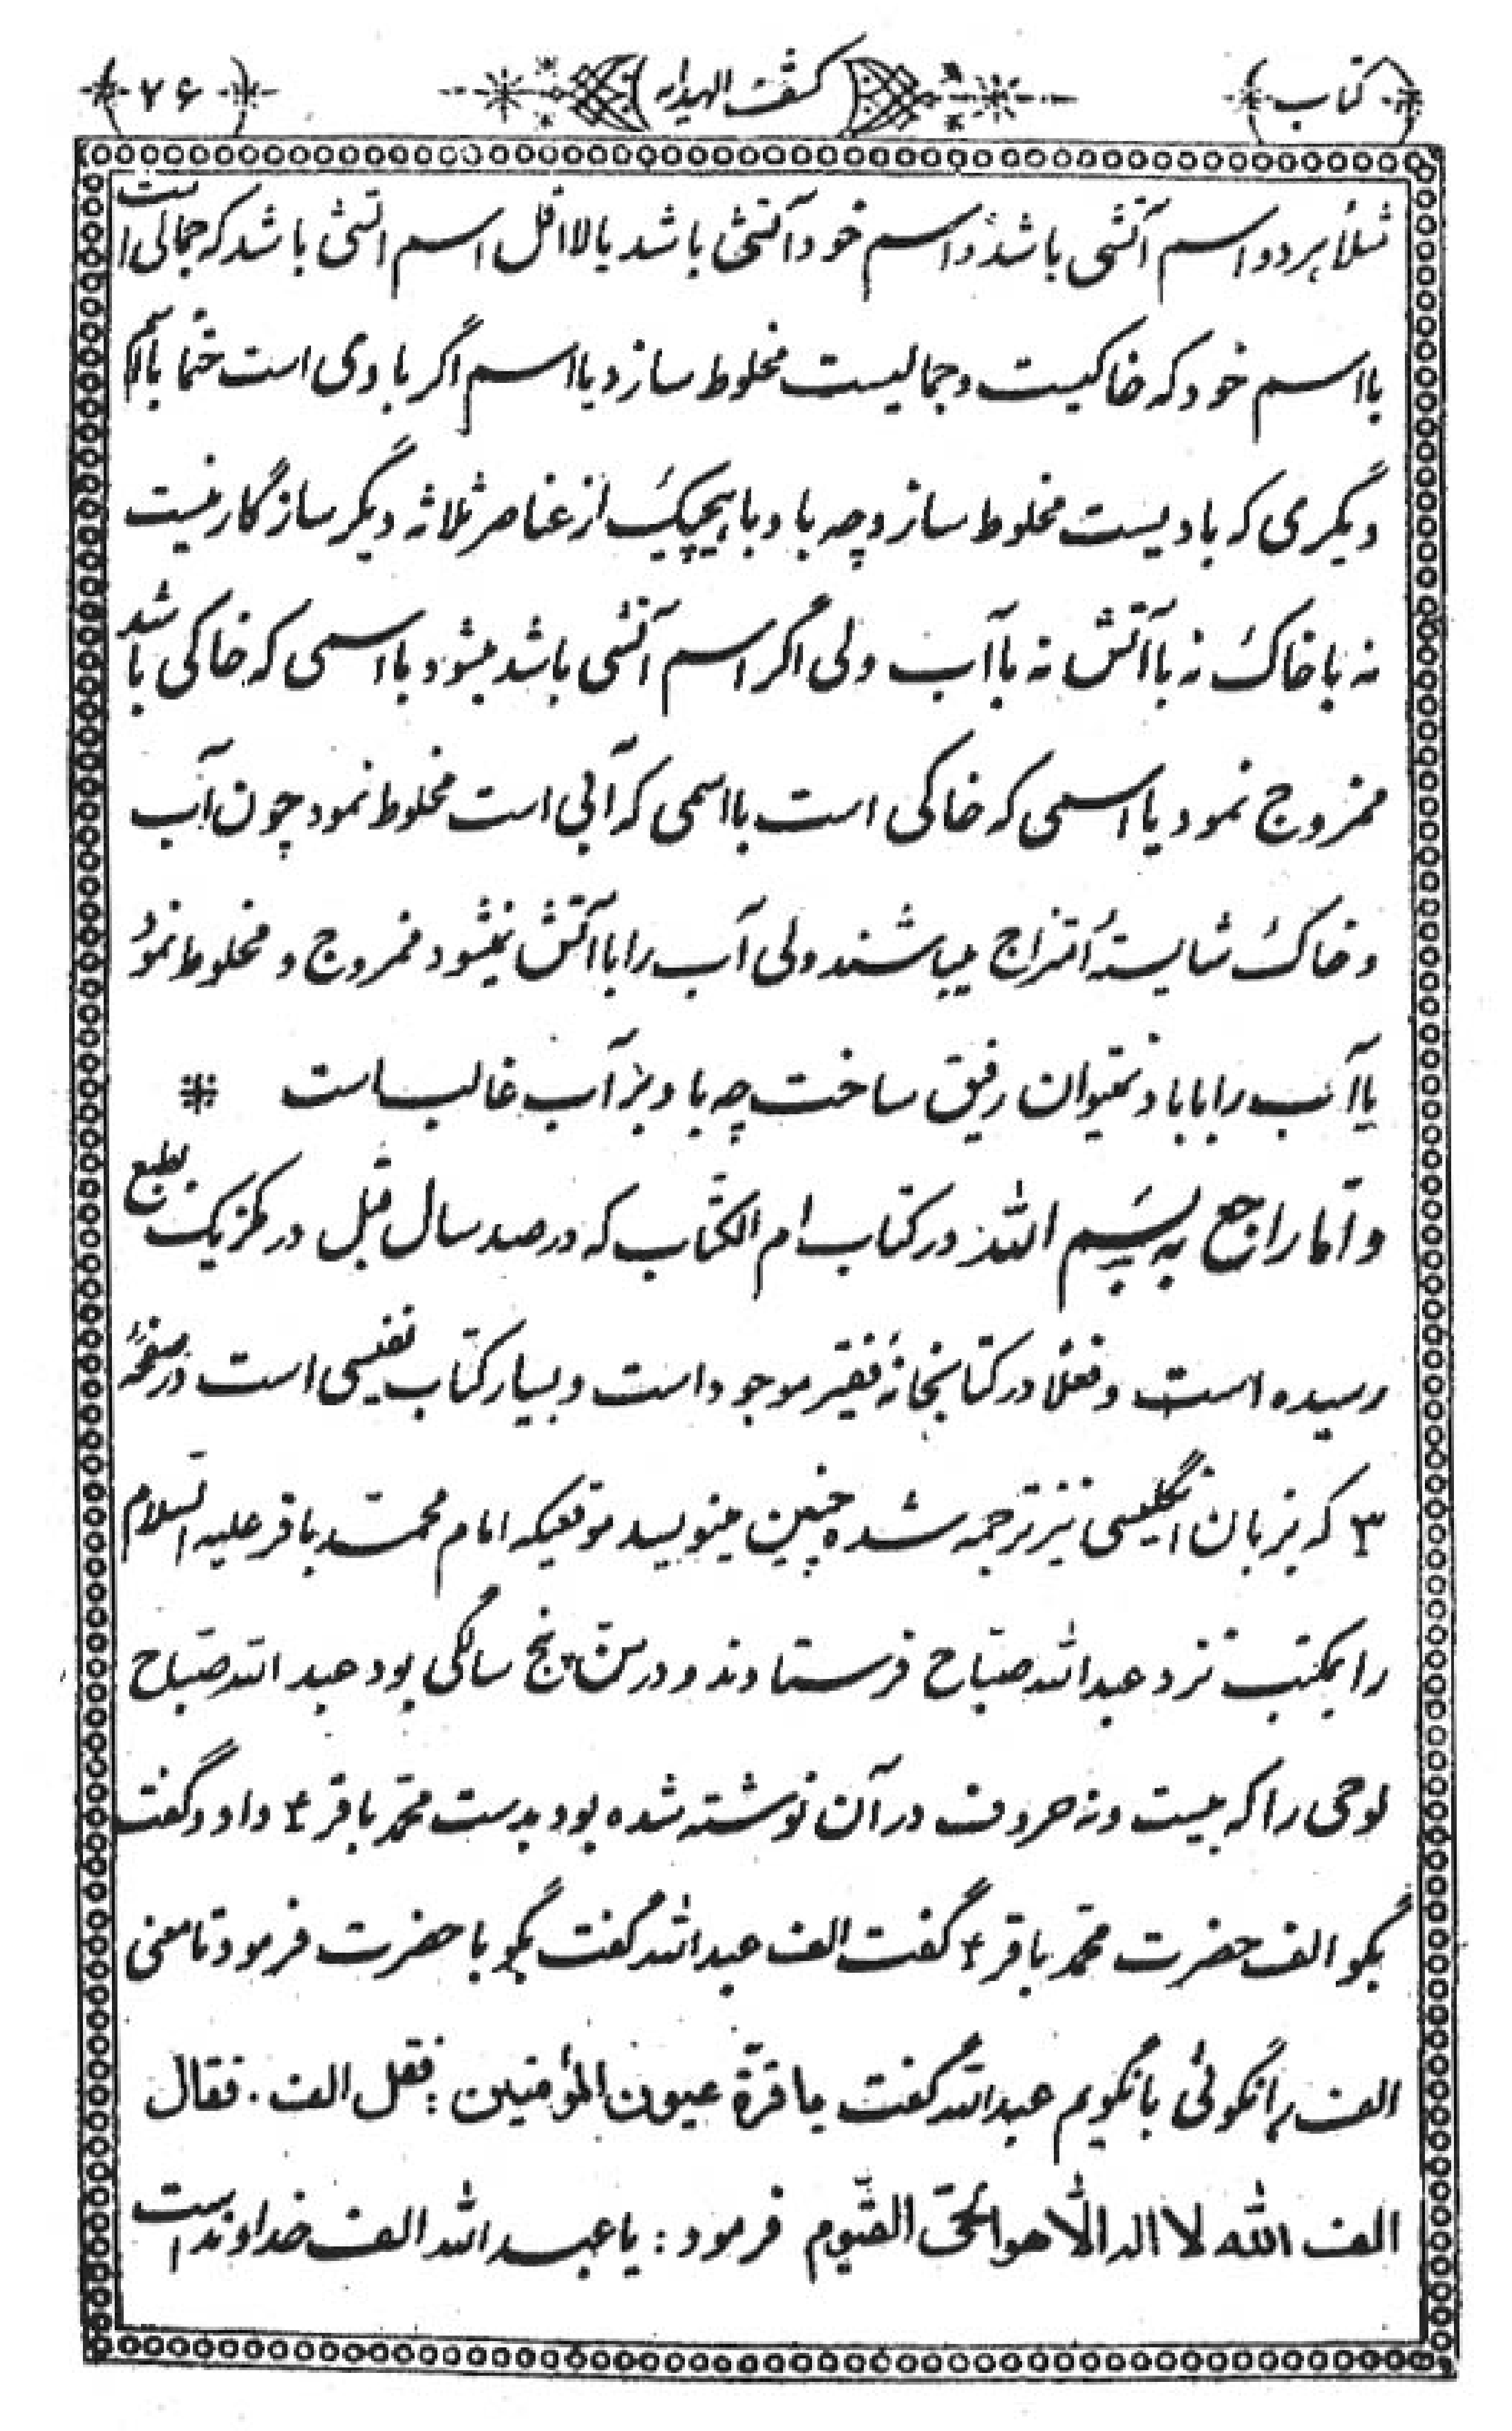 کتاب کشف الهدایه ۷۶
مثلاً هر دو اسم آتشی باشد و اسم خود آتشی باشد یا لااقل اسم اتشی باشد که جمالی است
با اسم خود که خاکیست و جمالیست مخلوط سازد یا اسم اگر بادی است حتماً باسم
دیگری که بادیست مخلوط سازد چه باد با هیچیک از عناصر ثلاثه دیگر سازگار نیست
نه با خاک نه با آتش نه با آب ولی اگر اسم آتشی باشد میشود با اسمی که خاکی باشد
ممزوج نمود یا اسمی که خاکی است با اسمی که آبی است مخلوط نمود چون آب
و خاک شایستهٔ امتزاج میباشند ولی آب را با آتش نمیشود ممزوج و مخلوط نمود
یا آب را با باد نمیتوان رفیق ساخت چه باد بر آب غالب است #
و اما راجع به بسم الله در کتاب ام الکتاب که در صد سال قبل در مکزیک بطبع
رسیده است و فعلاً در کتابخانهٔ فقیر موجود است و بسیار کتاب نفیسی است در صفحهٔ
۳ که بزبان انگلیسی نیز ترجمه شده چنین مینویسد موقعیکه امام محمد باقر علیه السلام
را بمکتب نزد عبدالله صبّاح فرستادند و در سنّ پنج سالگی بود عبدالله صبّاح
لوحی را که بیست و نه حروف در آن نوشته شده بود بدست محمّد باقر ع داد و گفت
بگو الف حضرت محمّد باقر ع گفت الف عبدالله گفت بگو با حضرت فرمود تا معنی
الف را نگوئی با نگویم عبدالله گفت یا قرّة عیون المؤمنین : فقل الف . فقال
الف الله لا اله الّا هو الحیّ القیّوم فرمود : یا عبدالله الف خداوند است